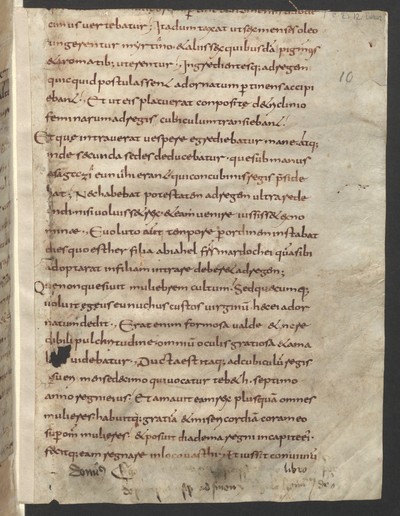 cunus uertebatur; Ita dumtaxat ut sex menses oleo
ungerentur myrtino & aliis sex quibusda pigmtis
& aromatib; uterentur. Ingredientesq; ad regem
quicquid postulassen& ad ornatum pertinens accipi
eban&. Et ut eis placuerat composite de triclinio
feminarum ad regis cubiculum transieban&.
Et que intrauerat uespere egrediebatur mane atq;
inde secunda sedes deducebatur. que sub manu
10
eunuchi erant qui concubinis regis preside
bat. Nec habebat potestatem ad regem ultra rede
undi nisi uoluiss& rex & eam uenire iussiss& ex no
mine. Euoluto aut tempore per ordinem instabat
dies quo esther filia abiahel fris mardochei quasi sibi
adoptarat in filiam intrare deber& ad regem;
Que non quesiuit muliebrem cultum. Sed quecumque
uoluit eggus eunuchus custos uirginum hec ei ador
natum dedit. Erat enim formosa ualde & incre
dibili pulchritudine. omniu oculis gratiosa & ama
uidebatur. Ducta est itaq; ad cubiculu regis
mense decimo qui uocatur tebeth. septimo
anno regni eius. Et amauit eam rex plusquam omnes
mulieres. habuitq; gratia & misericordiam coram eo
super om mulieres. & posuit diadema regni in capite ei
fecitq; eam regnare in loco uasthi. Et iussit conuiuiu
libro